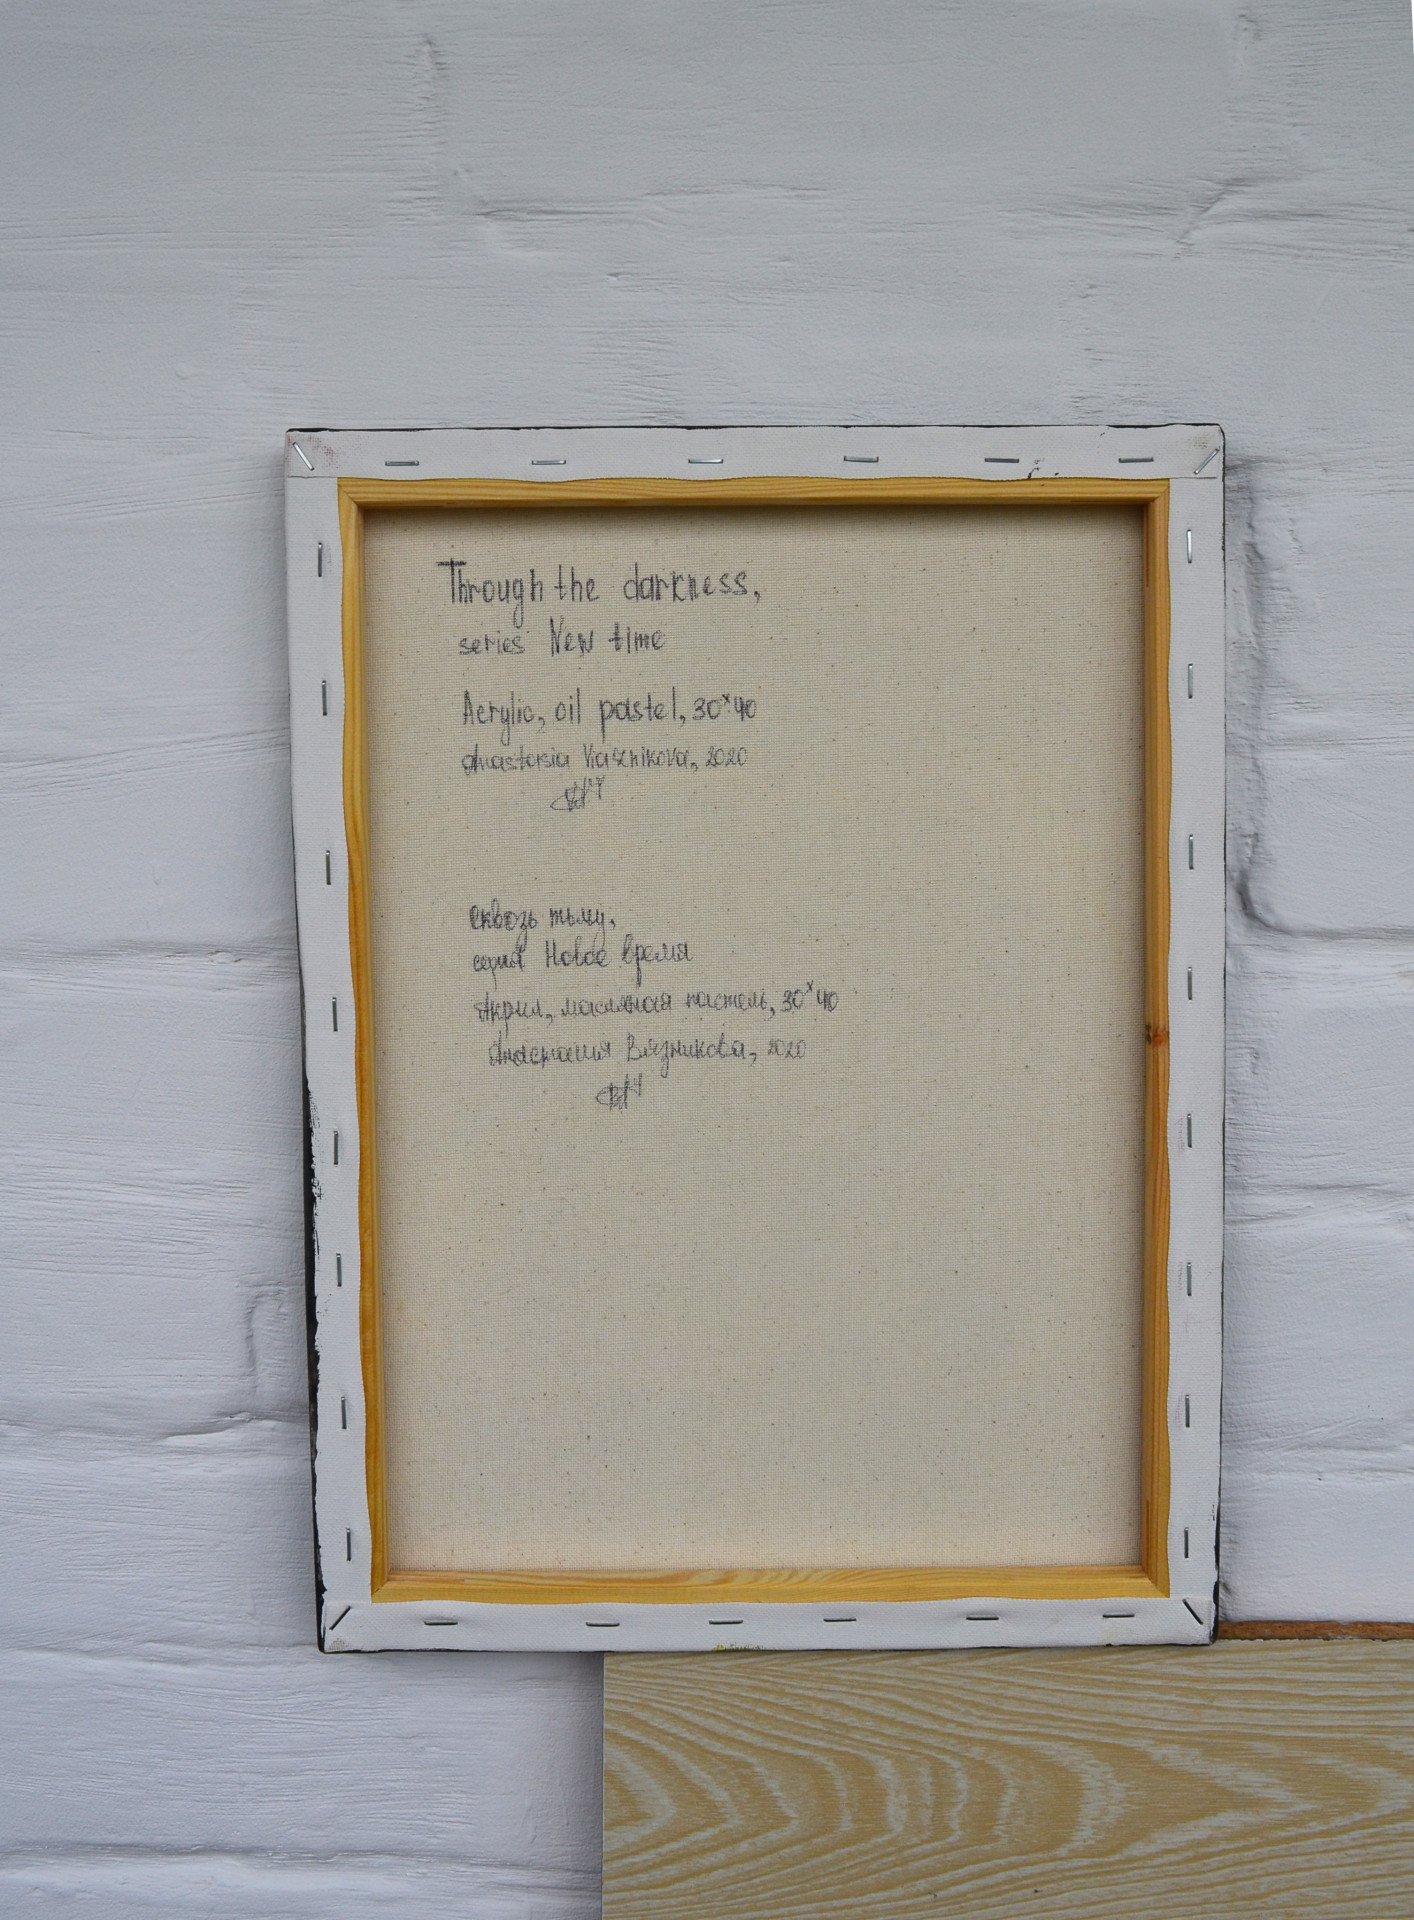 Through the darkness,
series New time
Acrylic, oil pastel, 30×40
Anastasia Viaznikova, 2020
Сквозь тьму,
серия Новое время
Акрил, масляная пастель, 30×40
Анастасия Вязникова, 2020